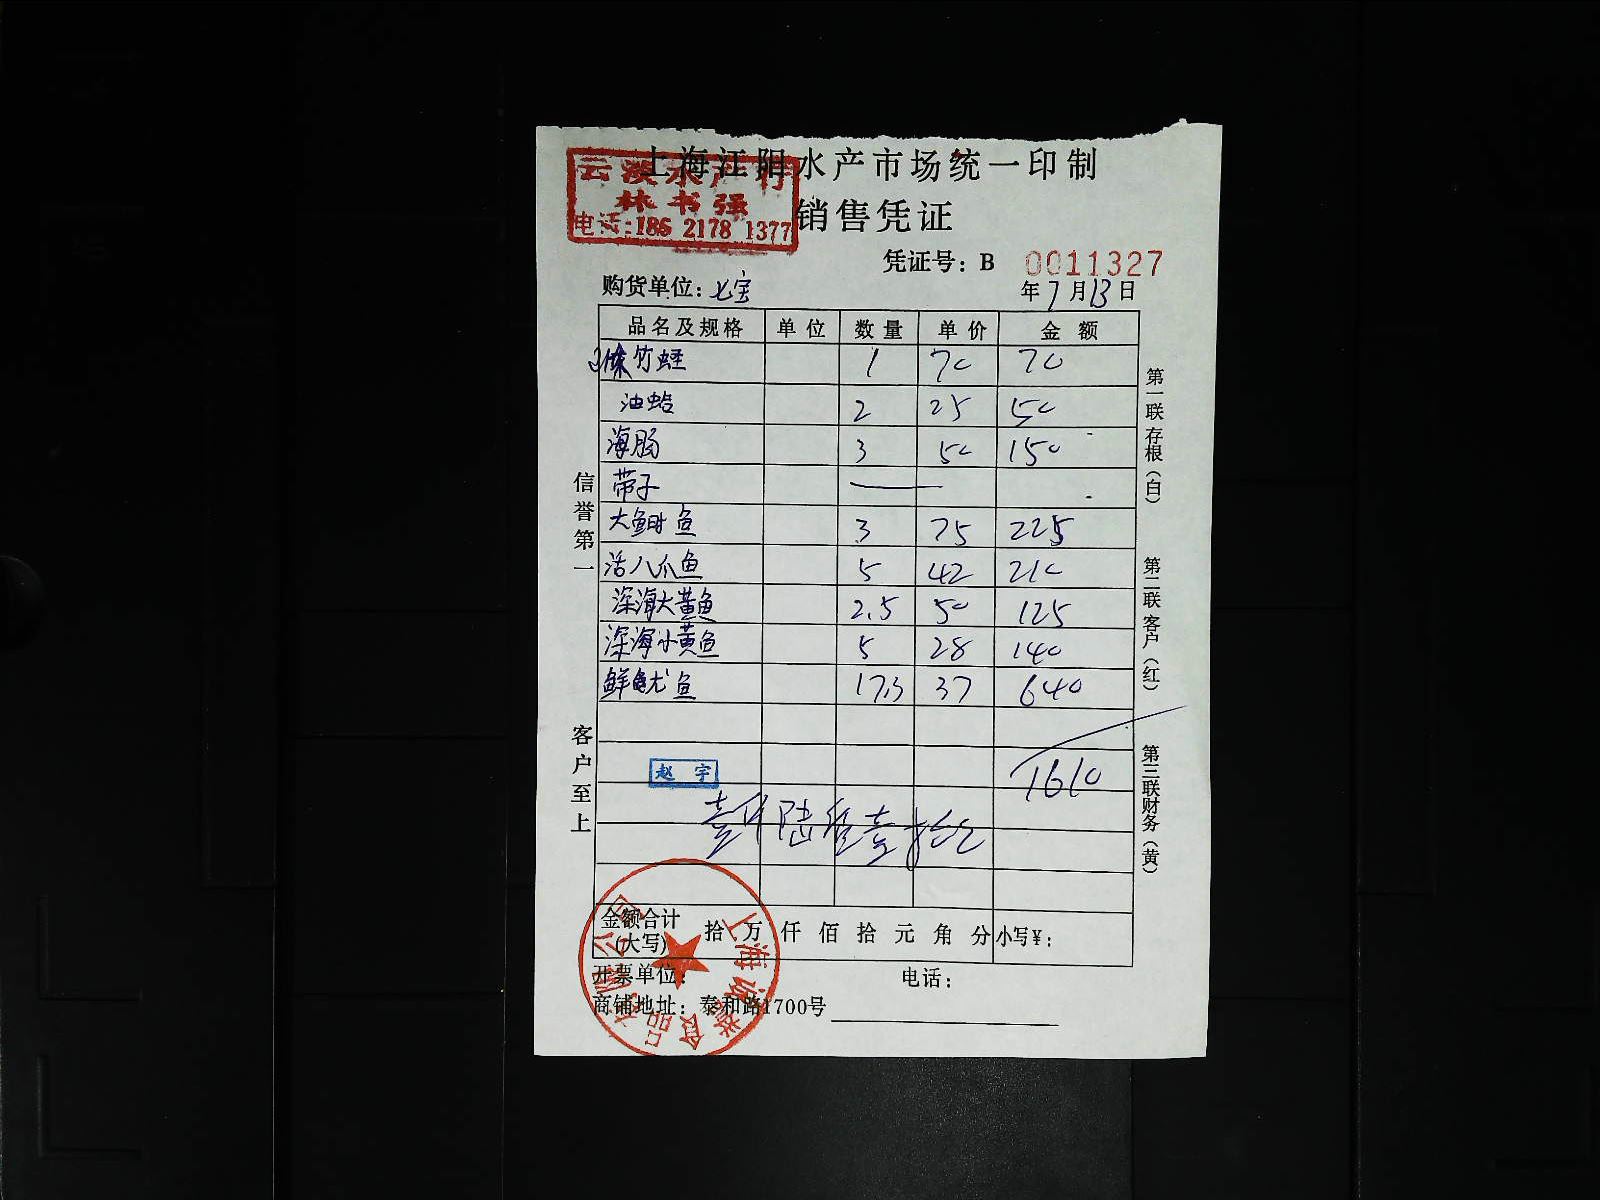 上海江阳水产市场统一印制
云淡水产行
林书强
电话:186 2178 1377
销售凭证
凭证号: B 0011327
购货单位: 七宝
年 7 月 13 日
品名及规格 单位 数量 单价 金额
竹蛏 1 70 70
油蛤 2 25 50
海肠 3 50 150
带子 —
大鲥鱼 3 75 225
活八爪鱼 5 42 210
深海大黄鱼 2.5 50 125
深海小黄鱼 5 28 140
鲜鱿鱼 17.3 37 640
1610
赵宇
壹仟陆佰壹拾元
金额合计(大写) 拾 万 仟 佰 拾 元 角 分 小写¥:
开票单位: 电话:
商铺地址: 泰和路1700号
信誉第一
客户至上
第一联 存根(白)
第二联 客户(红)
第三联 财务(黄)
上海诚誉食品有限公司